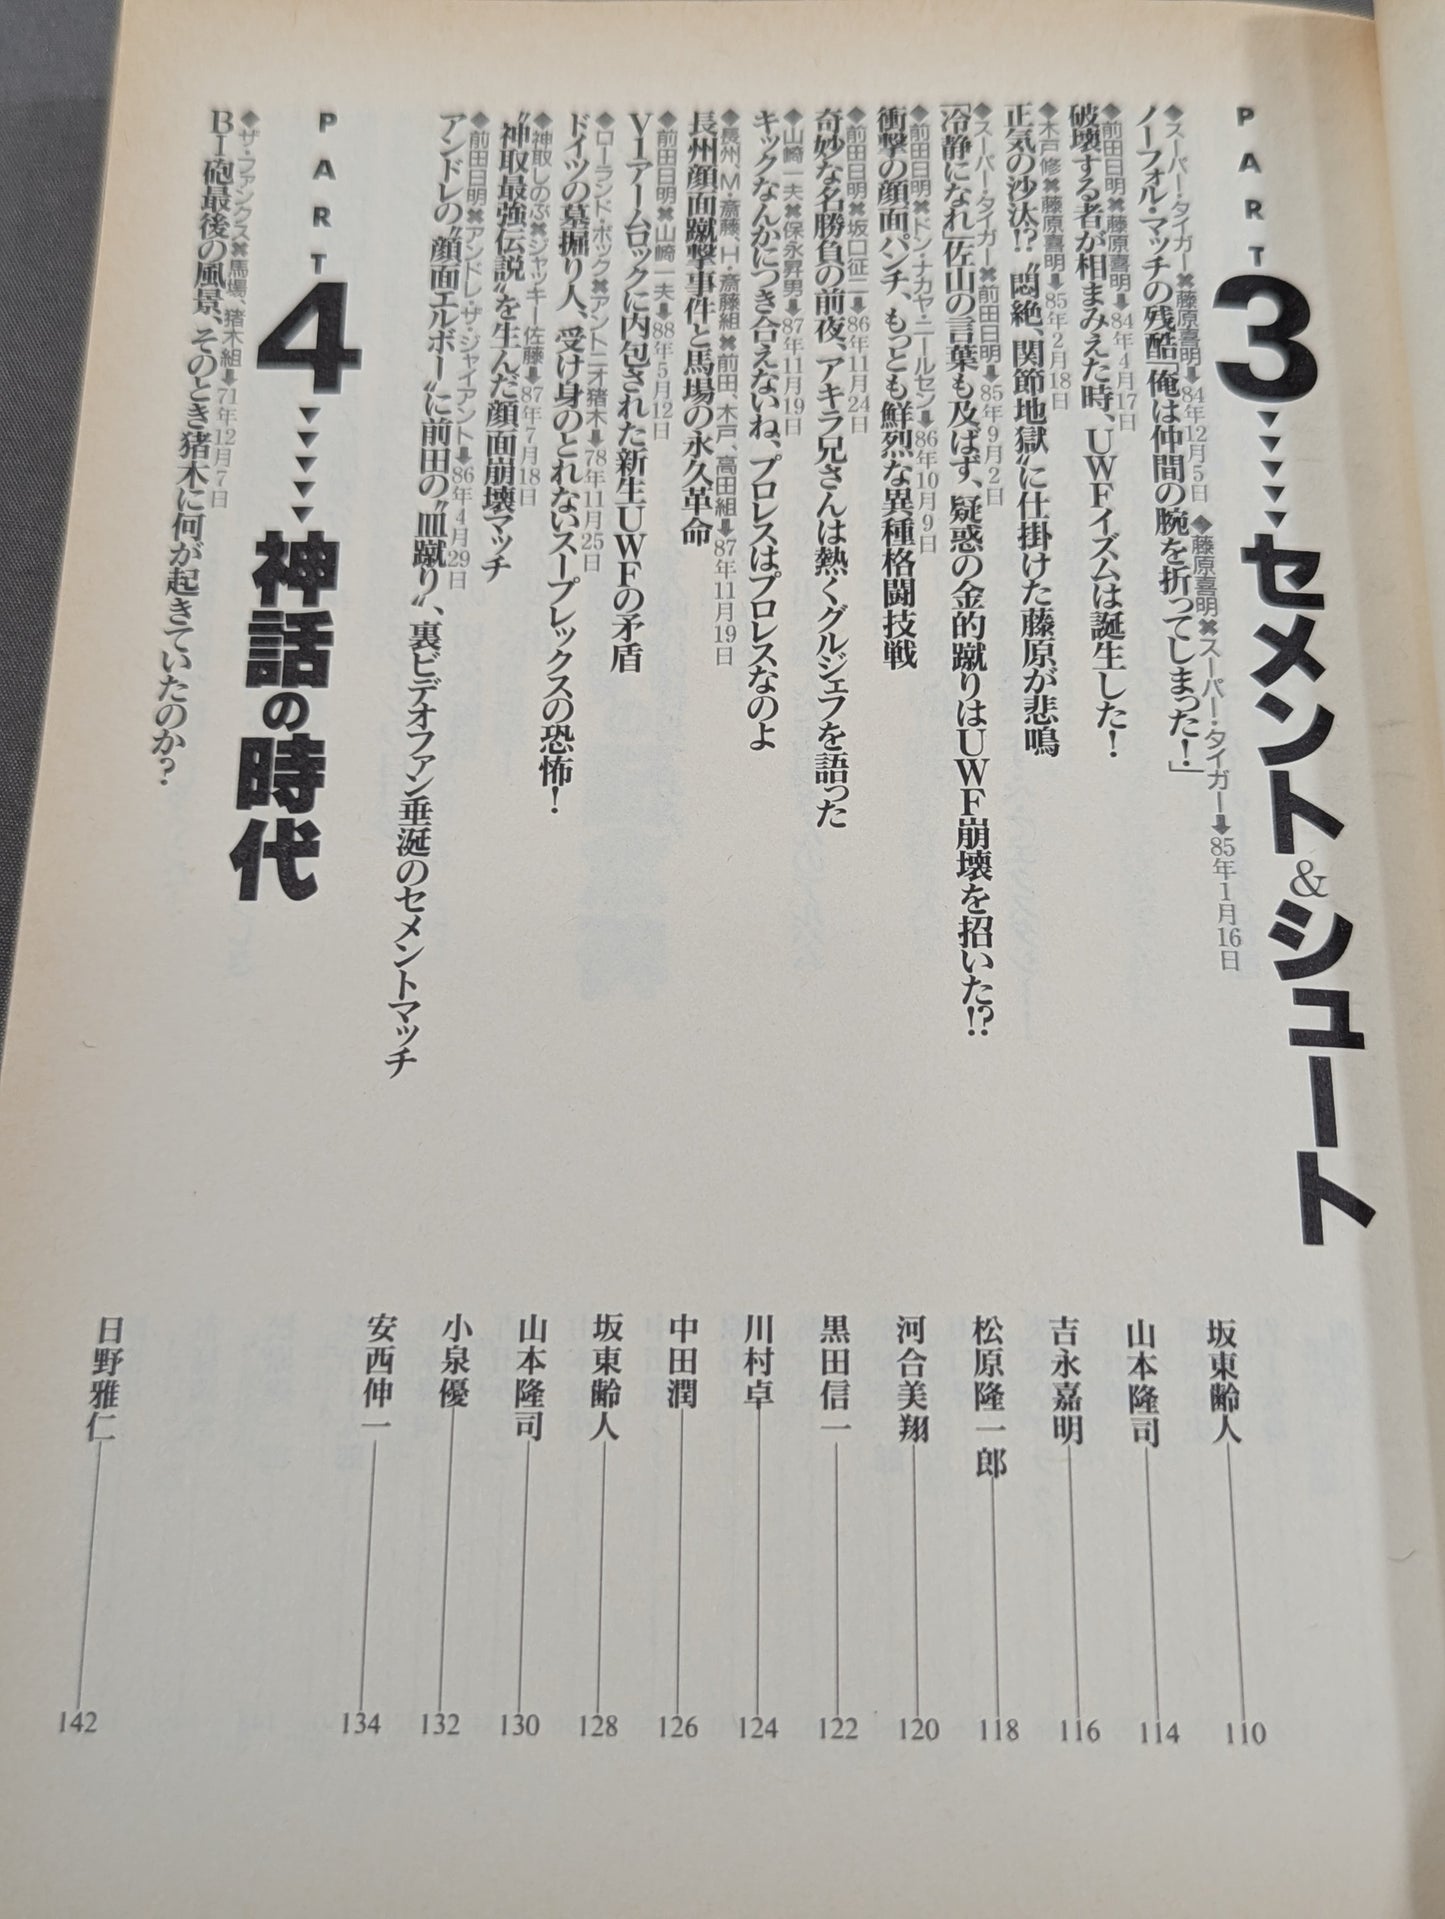 PART3 セメント&シュート
◆スーパー・タイガー✖藤原喜明➡84年12月5日 ◆藤原喜明✖スーパー・タイガー➡85年1月16日
ノーフォル・マッチの残酷「俺は仲間の腕を折ってしまった!」
坂東齢人 110
◆前田日明✖藤原喜明➡84年4月17日
破壊する者が相まみえた時、UWFイズムは誕生した!
山本隆司 114
◆木戸修✖藤原喜明➡85年2月18日
正気の沙汰!?〝悶絶、関節地獄〟に仕掛けた藤原が悲鳴
吉永嘉明 116
◆スーパー・タイガー✖前田日明➡85年9月2日
「冷静になれ」佐山の言葉も及ばず、疑惑の金的蹴りはUWF崩壊を招いた!?
松原隆一郎 118
◆前田日明✖ドン・ナカヤ・ニールセン➡86年10月9日
衝撃の顔面パンチ、もっとも鮮烈な異種格闘技戦
河合美翔 120
◆前田日明✖坂口征二➡86年11月24日
奇妙な名勝負の前夜、アキラ兄さんは熱くグルジェフを語った
黒田信一 122
◆山崎一夫✖保永昇男➡87年11月19日
キックなんかにつき合えないね、プロレスはプロレスなのよ
川村卓 124
◆長州、M・斎藤、H・斎藤組✖前田、木戸、高田組➡87年11月19日
長州顔面蹴撃事件と馬場の永久革命
中田潤 126
◆前田日明✖山崎一夫➡88年5月12日
V1アームロックに内包された新生UWFの矛盾
坂東齢人 128
◆ローランド・ボック✖アントニオ猪木➡78年11月25日
ドイツの墓掘り人、受け身のとれないスープレックスの恐怖!
山本隆司 130
◆神取しのぶ✖ジャッキー佐藤➡87年7月18日
〝神取最強伝説〟を生んだ顔面崩壊マッチ
小泉優 132
◆前田日明✖アンドレ・ザ・ジャイアント➡86年4月29日
アンドレの〝顔面エルボー〟に前田の〝皿蹴り〟、裏ビデオファン垂涎のセメントマッチ
安西伸一 134
PART4 神話の時代
◆ザ・ファンクス✖馬場、猪木組➡71年12月7日
BI砲最後の風景、そのとき猪木に何が起きていたのか?
日野雅仁 142